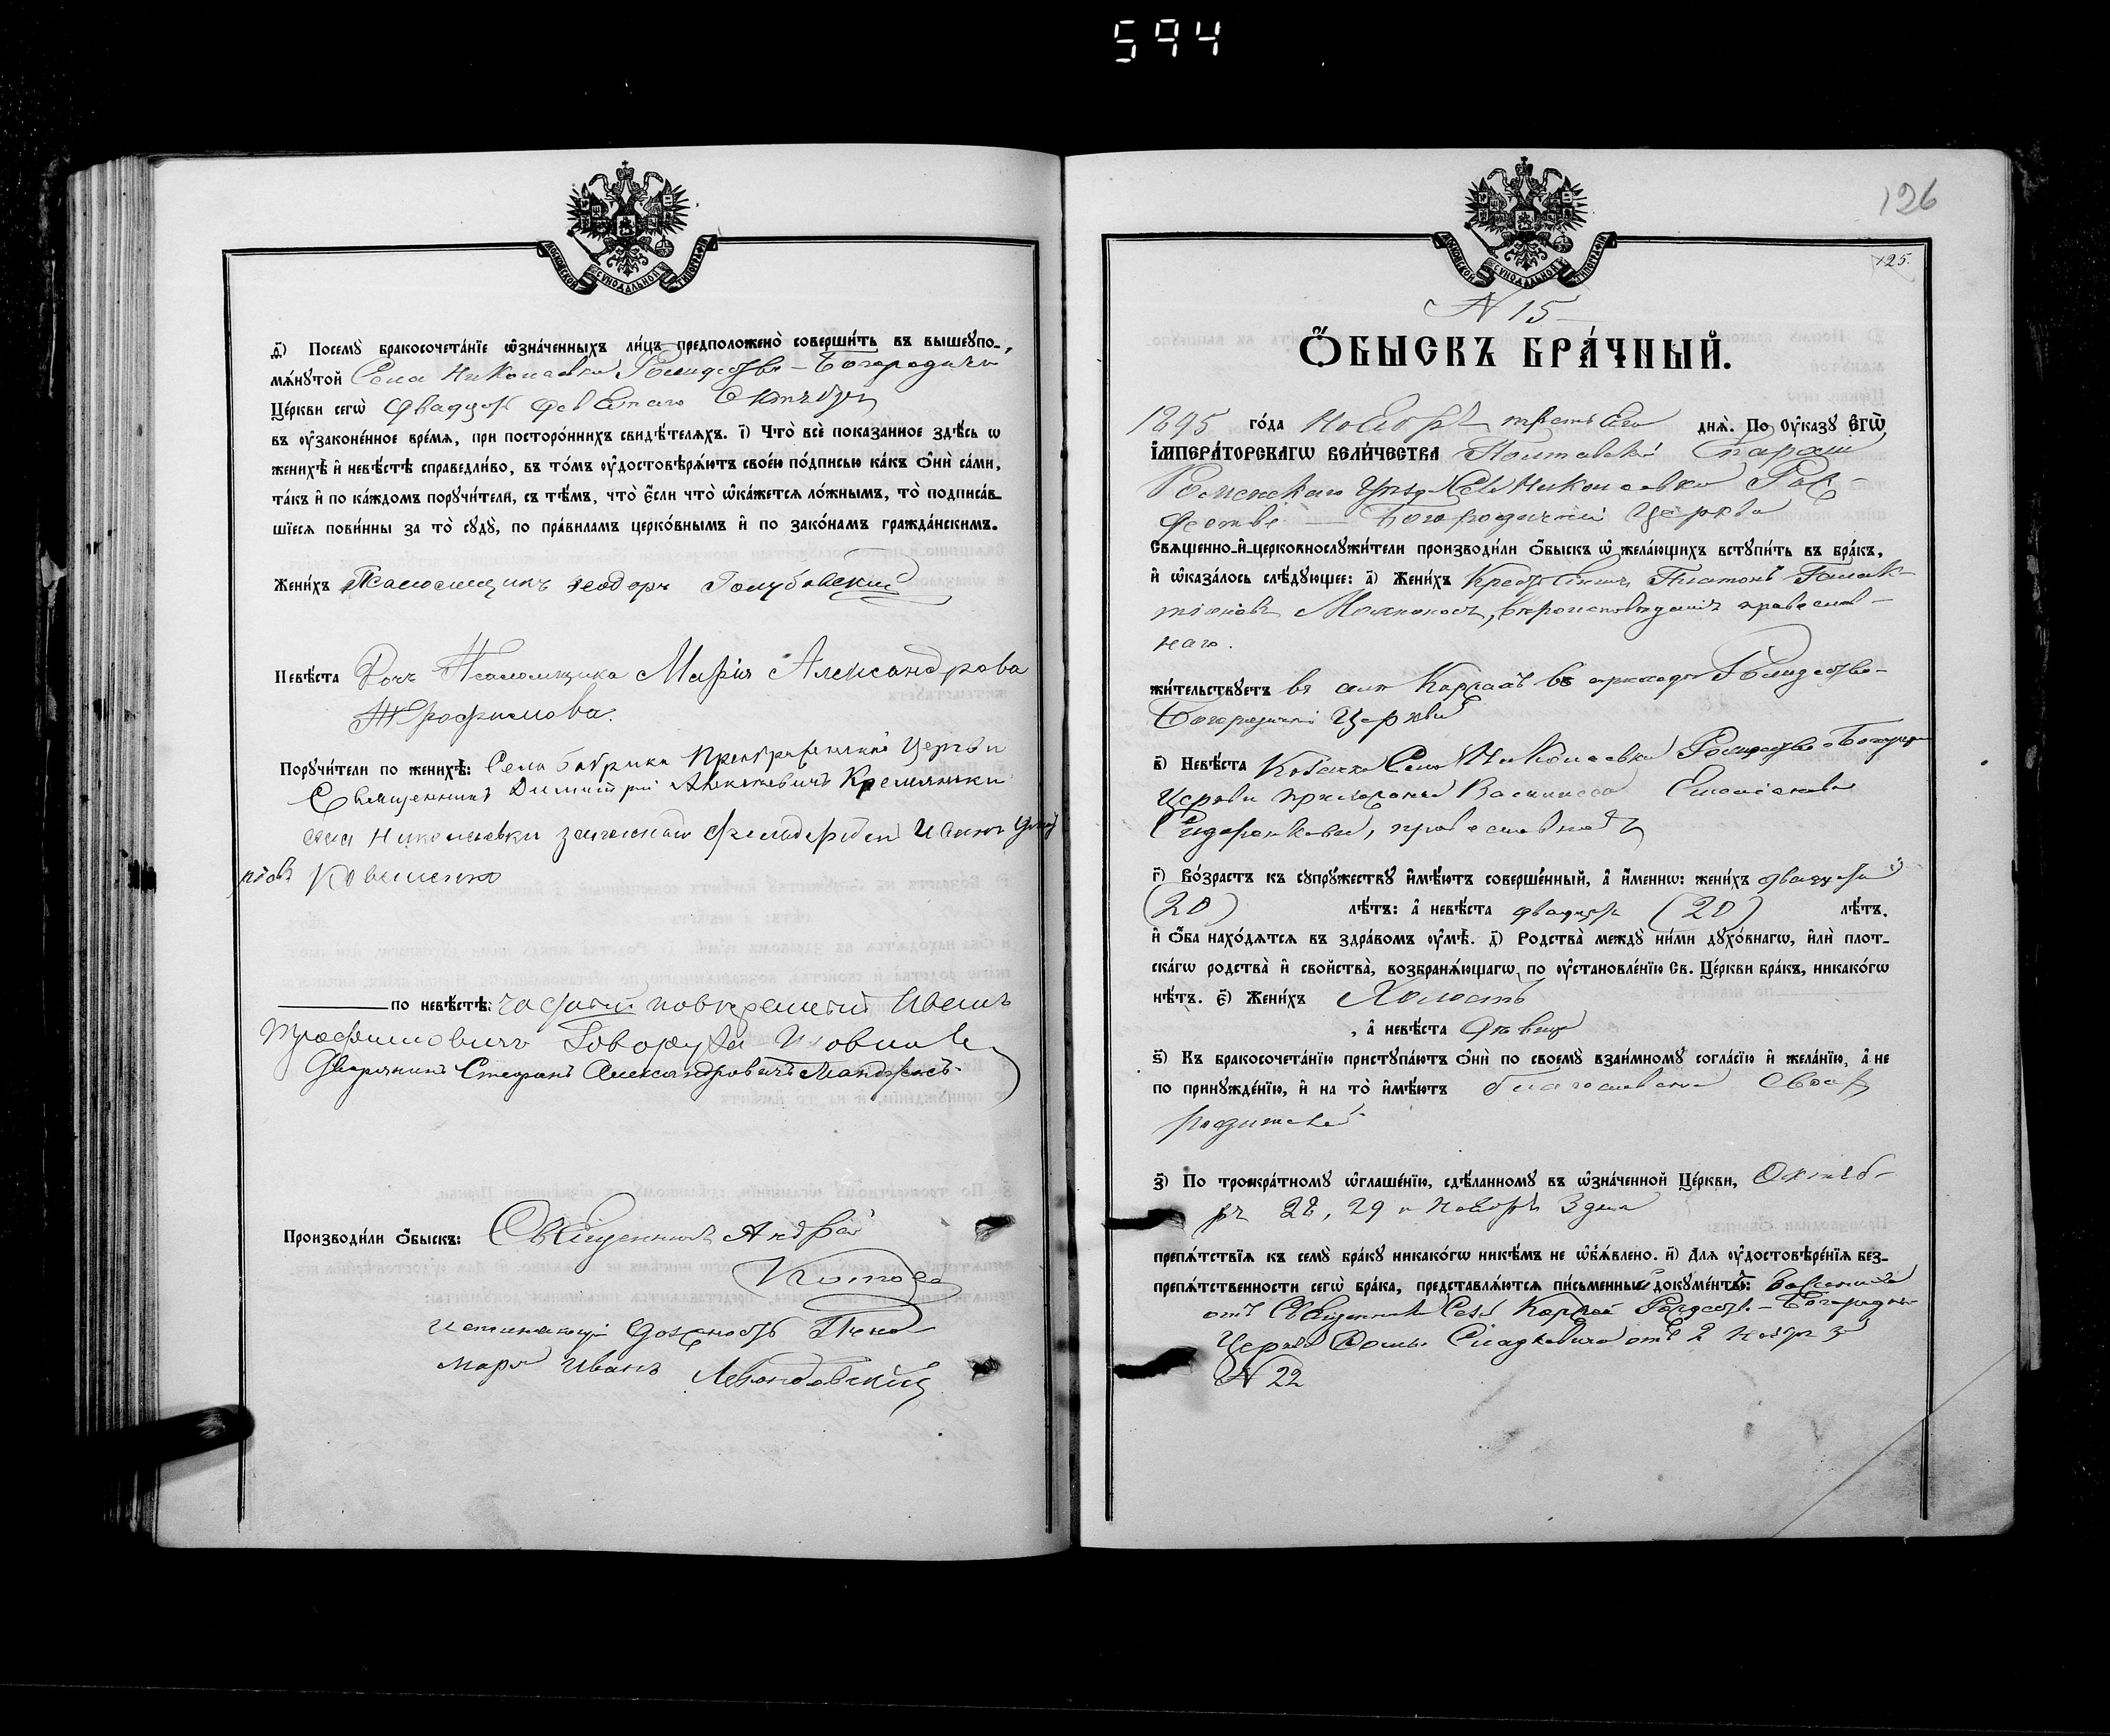 594
МОСКОВСКОЙ СУНОДАЛЬНОЙ ТИПОГРАФІИ
д҃) Посемꙋ̀ бракосочета́нїе ѡ҆зна́ченныхъ ли́цъ предположено̀ соверши́ть въ вышеꙋпо-
мѧ́нꙋтой Села Николаевки Рождество-Богородичной
Це́ркви сегѡ̀ двадцать девятаго Октября
въ ᲂу҆зако́ненное вре́мѧ, при посторо́ннихъ свидѣ́телѧхъ. і҃) Что̀ всѐ показанное здѣ́сь ѡ
женихѣ̀ и҆ невѣ́стѣ справедли́во, въ то́мъ ᲂу҆достовѣрѧ́ютъ свое́ю по́дписью ка́къ ѻ҆нѝ са́ми,
та́къ и҆ по ка́ждомъ порꙋчи́тели, съ тѣ́мъ, что̀ є҆́сли что̀ ѡ҆ка́жетсѧ ло́жнымъ, то̀ подписа́в-
шїесѧ пови́нны за то̀ сꙋдꙋ̀, по пра́виламъ церко́внымъ и҆ по зако́намъ гражда́нскимъ.
Жени́хъ Псаломщикъ Ѳеодоръ Голубовскій
Невѣ́ста Дочь Псаломщика Марія Александрова
Трофимова.
Порꙋчи́тели по женихѣ̀: Села Бобрика Преображенской Церкви
Священникъ Димитрій Кремянский
села Николаевки запасный Иванъ
Коваленко
по невѣ́стѣ: Иванъ
Трофимовичъ Говоруха
Дворянинъ Стефанъ Александровичъ Мандрасъ.
Производи́ли ѻ҆́быскъ: Священникъ Андрей
Котов
исправляющій должность Поно-
маря Иванъ Левандовскій
126
125.
МОСКОВСКОЙ СУНОДАЛЬНОЙ ТИПОГРАФІИ
N 15
Ѻ҆́БЫСКЪ БРА́ЧНЫЙ.
1895 го́да Ноября третьего днѧ̀. По ᲂу҆ка́зꙋ Є҆ГѠ̀
І҆МПЕРА́ТОРСКАГѠ ВЕЛИ́ЧЕСТВА Полтавской Епархіи
Роменскаго Уѣзда Села Николаевки Рож-
дество — Богородичной Церкви
Свѧщенно-и҆-церковнослꙋжи́тели производи́ли ѻ҆́быскъ ѡ҆ жела́ющихъ встꙋпи́ть въ бра́къ,
и҆ ѡ҆каза́лось слѣ́дꙋющее: а҃) Жени́хъ Платонъ Галак-
тіоновъ вѣроисповѣданія православ-
наго.
жи́тельствꙋетъ въ селѣ въ приходѣ Рождество-
Богородичной Церкви
в҃) Невѣ́ста Козачка Села Николаевки Рождество-Богородич
Церкви прихожанка Василисса
Сидоренкова, православная
г҃) Во́зрастъ къ сꙋпрꙋ́жествꙋ и҆мѣ́ютъ соверше́нный, а҆ и҆́меннѡ: жени́хъ двадцать
(20) лѣ́тъ: а҆ невѣ́ста двадцать (20) лѣ́тъ.
и҆ ѻ҆́ба нахо́дѧтсѧ въ здра́вомъ ᲂу҆мѣ̀. д҃) Родства̀ междꙋ̀ ни́ми дꙋхо́внагѡ, и҆лѝ плот-
ска́гѡ родства̀ и҆ свойства̀, возбранѧ́ющагѡ, по ᲂу҆становле́нїю Св. Це́ркви бра́къ, никако́гѡ
нѣ́тъ. є҃) Жени́хъ Холостъ
, а҆ невѣ́ста Дѣвица
ѕ҃) Къ бракосочета́нїю пристꙋпа́ютъ ѻ҆нѝ по своемꙋ̀ взаи́мномꙋ согла́сїю и҆ жела́нїю, а҆ не
по принꙋжде́нїю, и҆ на то̀ и҆мѣ́ютъ благословеніе своихъ
родителей
з҃) По троекра́тномꙋ ѡ҆глаше́нїю, сдѣ́ланномꙋ въ ѡ҆зна́ченной Це́ркви, Октяб-
ря 28, 29 и Ноября 3 дня
препѧ́тствїѧ къ семꙋ̀ бра́кꙋ никако́гѡ никѣ́мъ не ѡ҆бъѧ́влено. и҃) Длѧ ᲂу҆достовѣре́нїѧ без-
препѧ́тственности сегѡ̀ бра́ка, представлѧ́ютсѧ пи́сьменные докꙋме́нты:
отъ Священника Села Рождество-Богородич
Церкви отъ 2 Ноября за
N 22